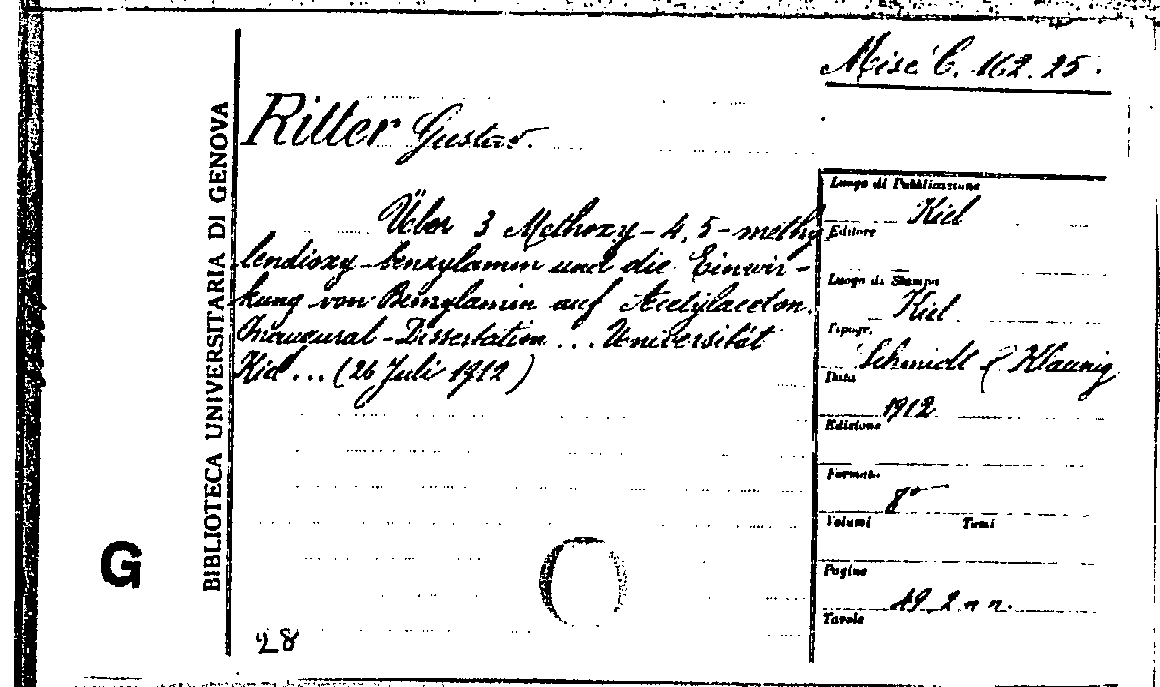 Misc C. 162. 25.
BIBLIOTECA UNIVERSITARIA DI GENOVA
Ritter Gustav.
Über 3 Methoxy-4,5-methy
lendioxy-benzylamin und die Einwir-
kung von Benzylamin auf Acetylaceton.
Inaugural-Dissertation ... Universität
Kiel ... (26 Juli 1912)
Luogo di Pubblicazione
Kiel
Editore
Luogo di Stampa
Kiel
Tipogr.
Schmidt & Klaunig
Data
1912
Edizione
Formato
8°
Volumi Tomi
Pagine
49 2 n n.
Tavole
G
28